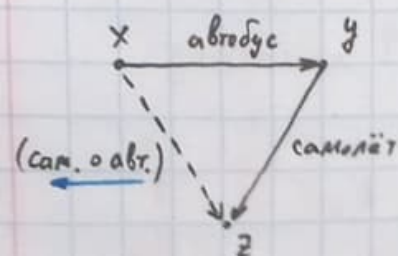 x автобус y
самолёт
(сам. о авт.)
z